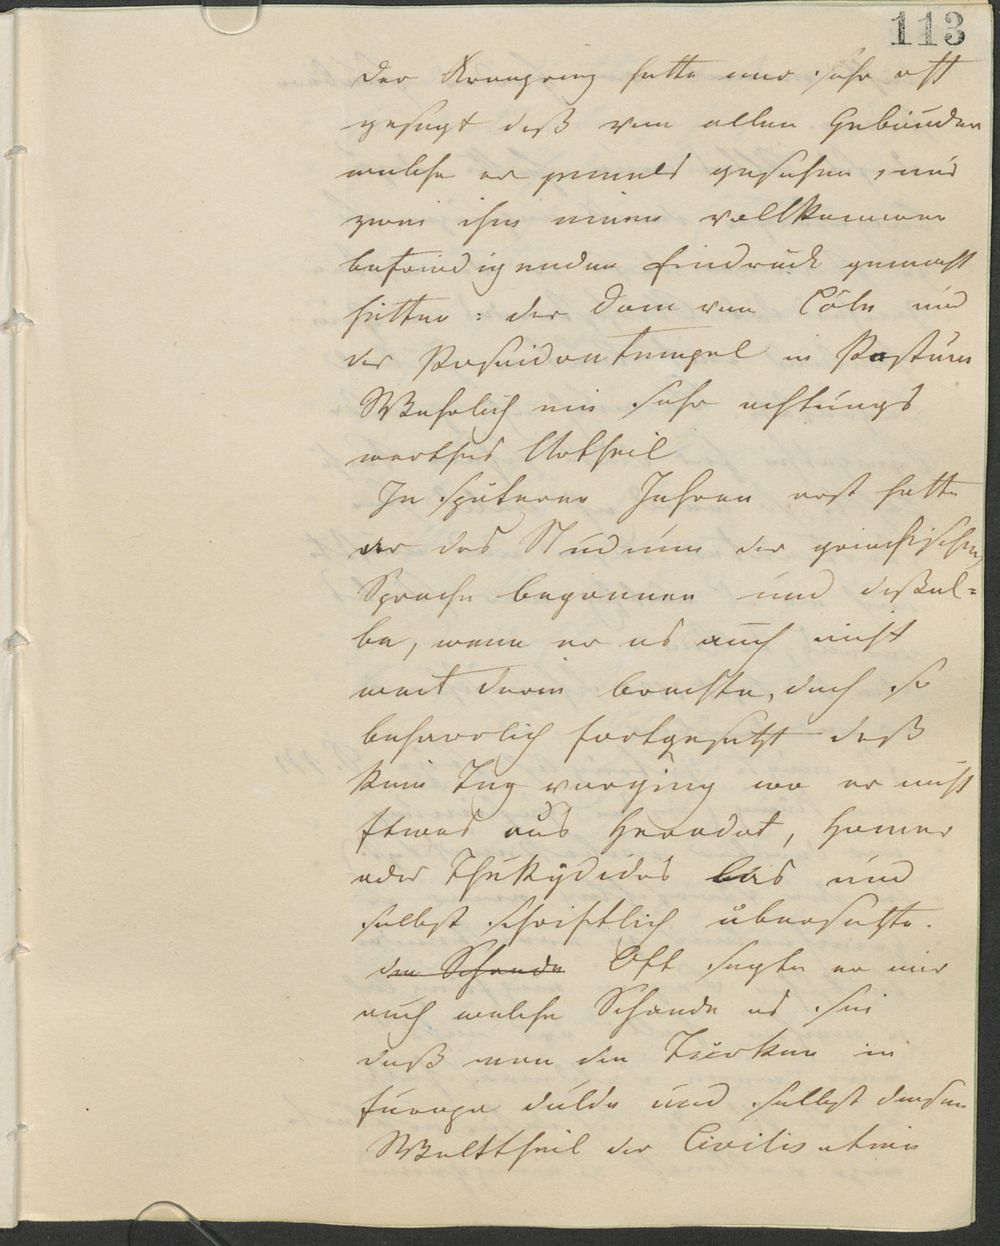 113
Der Kronprinz hatte mir sehr oft
gesagt daß von allen Gebäuden
welche er jemals gesehen, nur
zwei ihm einen vollkommen
befriedigenden Eindruck gemacht
hätten: der Dom von Cöln und
der Poseidontempel in Pästum
Wahrlich ein sehr achtungs
werthes Urtheil
In späteren Jahren erst hatte
er das Studium der griechischen
Sprache begonnen und dassel=
be, wenn er es auch nicht
weit darin brachte, doch so
beharrlich fortgesetzt daß
kein Tag verging wo er nicht
Etwas aus Herodot, Homer
oder Thükydides las und
selbst schriftlich übersetzte.
den Schande Oft sagte er mir
auch welche Schande es sei
daß man den Türken in
Europa dulde und selbst diesen
Welttheil der Civilisation